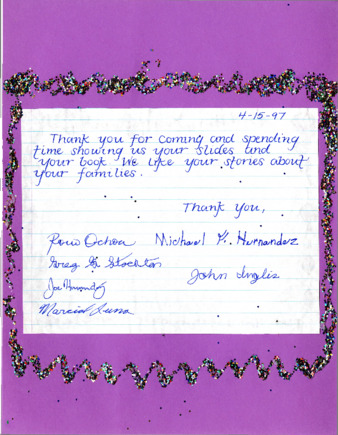 4-15-97
Thank you for coming and spending
time showing us your slides and
your book We like your stories about
your families.
Thank you,
Ochoa Michael Hernandez
Greg G. Stockton
John Inglis
Joe Hernandez
Marcial Luna